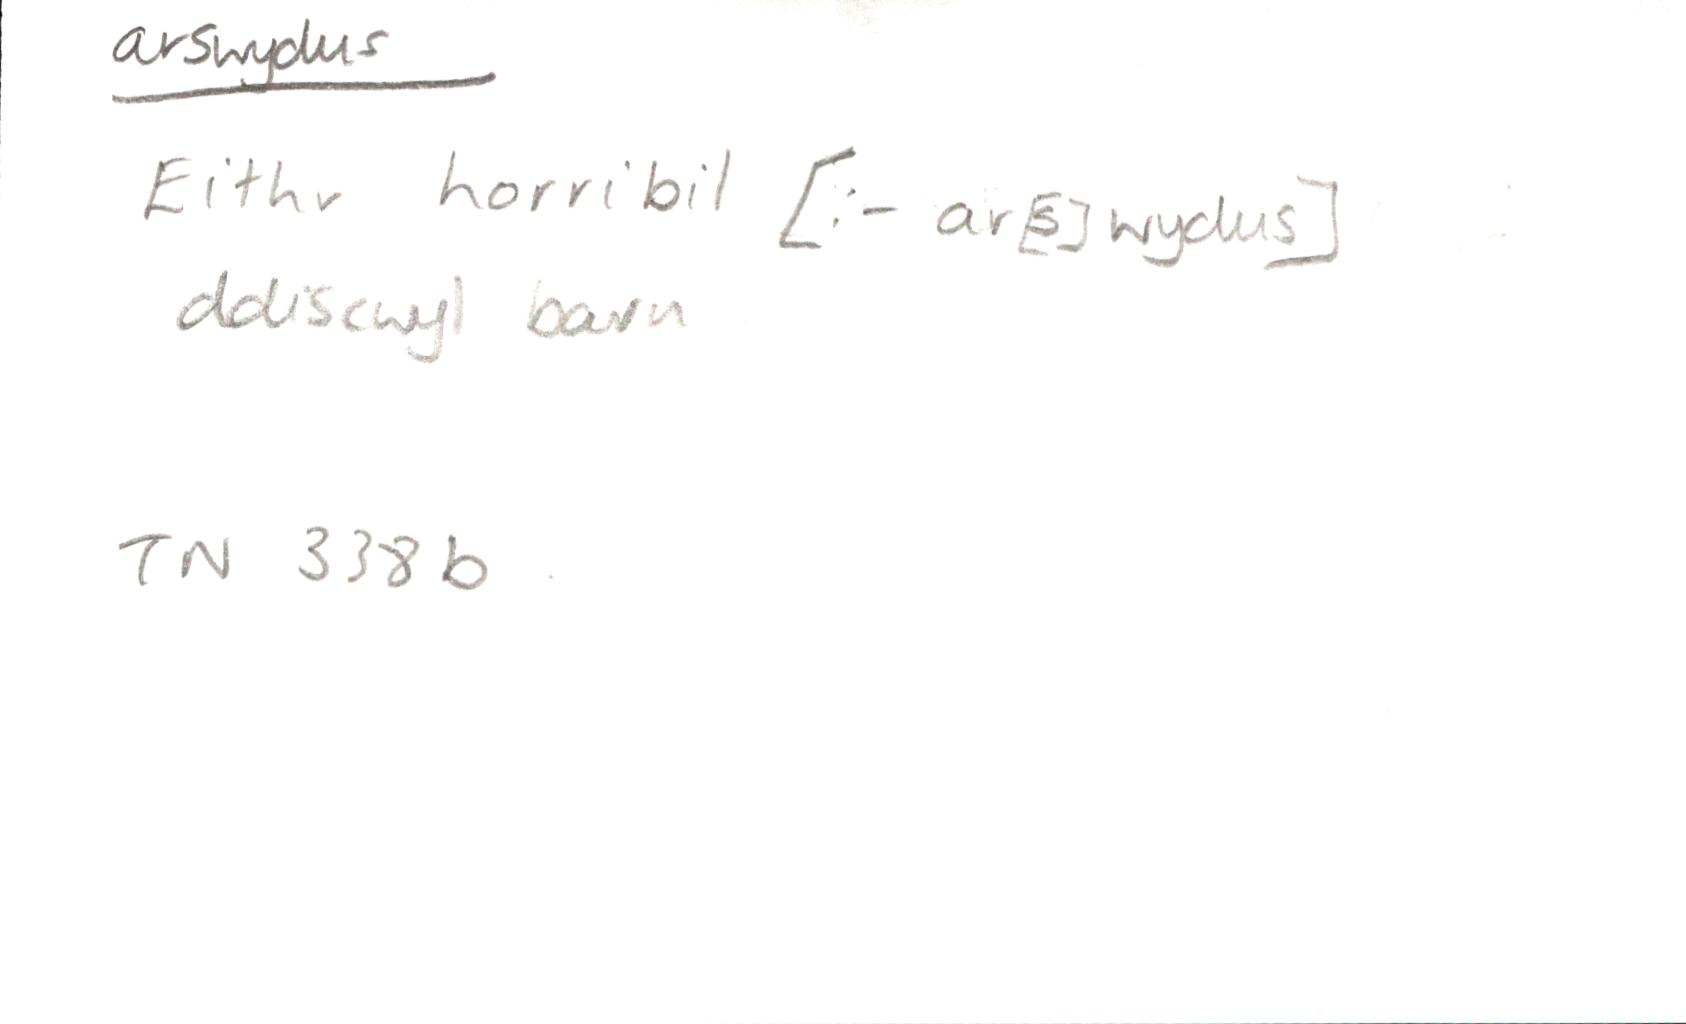 arswydus
Eithr horribil [:- ar[s]wydus]
ddiscwyl barn
TN 338b